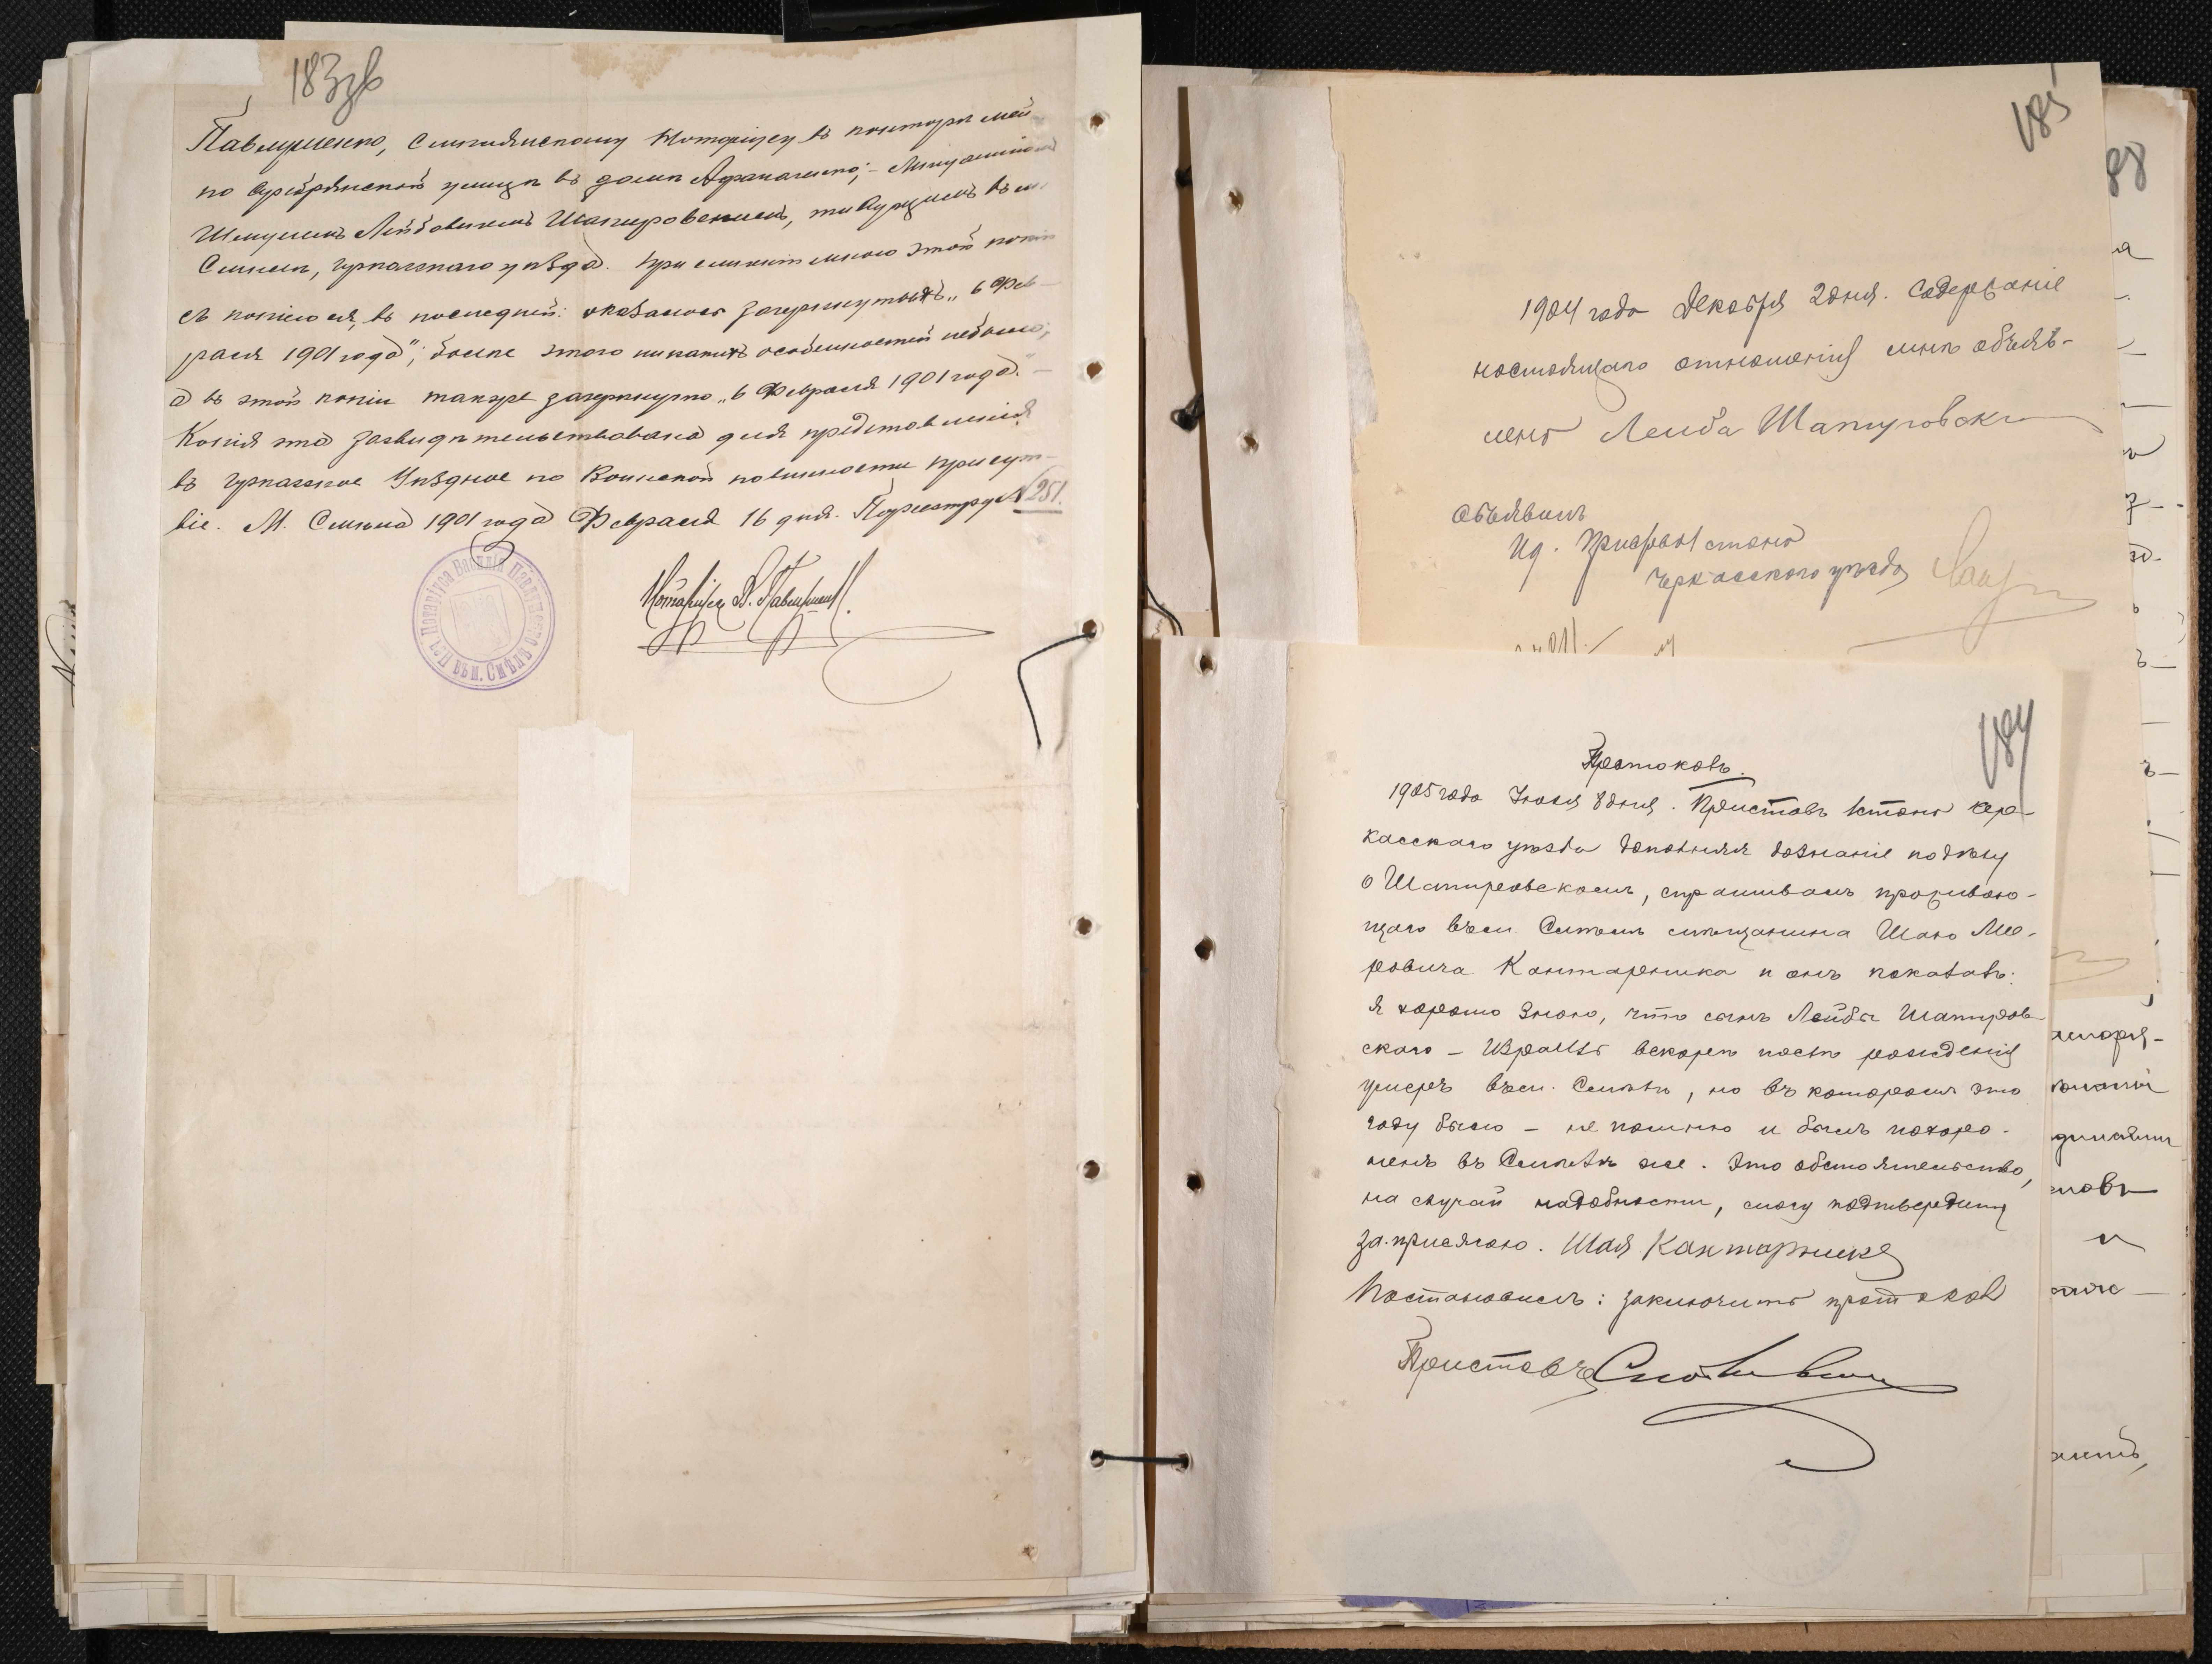 183 зв
Павлушенко, Смелянскому Нотаріусу въ конторе моей
по Серебрянской улице въ доме Афанасенко; Мещаниномъ
Шмулемъ Лейбовичемъ Шапировскимъ, живущимъ въ м.
Смеле, Черкасскаго уезда. При сличеніи мною этой копіи
съ копіею ея, въ последней: оказалось зачеркнутымъ „6 Фев-
раля 1901 года"; более этого никакихъ особенностей не было;
а въ этой копіи также зачеркнуто „6 Февраля 1901 года".
Копія эта засвидетельствована для представленія
въ Черкасское Уездное по Воинской повинности присутс-
віе. М. Смела 1901 года Февраля 16 дня. По реестру № 251.
Нотаріусъ В. Павлушенко.
Нотаріуса Василія Павлушенко въ м. Смѣлѣ
185
88
1904 года Декабря 2 дня. Содержаніе
настоящаго отношенія мне объяв-
лено Лейба Шапировски
Объявилъ
И д. Пристава 1 стана
Черкасскаго уезда
184
Протоколъ.
1905 года Іюля 8 дня. Приставъ 1 стана Чер-
касскаго уезда дополняя дознаніе по делу
о Шапировскомъ, спрашивалъ прожива-
ющаго въ м. Смеле мещанина Шаю Ме-
ровича Контарника и онъ показалъ:
Я хорошо знаю, что сынъ Лейбы Шапиров
скаго - Израиль вскоре после рожденія
умеръ въ м. Смеле, но въ которомъ это
году было - не помню и былъ похоро-
ненъ въ Смеле же. Это обстоятельство,
на случай надобности, могу подтвердить
за присягою. Шая Кантарника
Постановилъ: заключить протоколъ
Приставъ